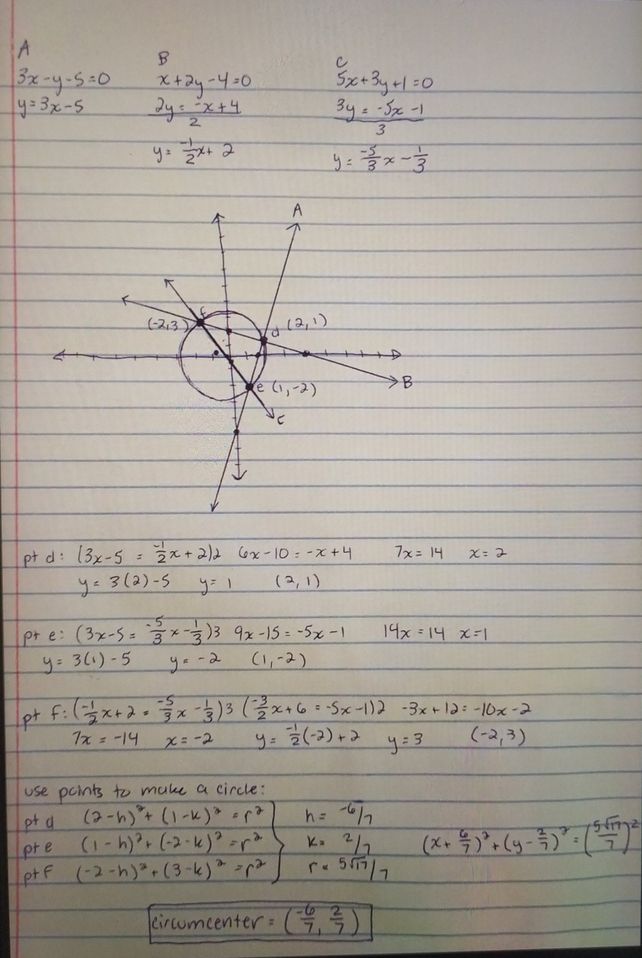 A B C
3x-y-5=0 x+2y-4=0 5x+3y+1=0
y=3x-5 2y=-x+4 3y=-5x-1
2 3
y=-1/2x+2 y=-5/3x-1/3
A
f
(-2,3) d (2,1)
B
e (1,-2)
C
pt d: (3x-5 = -1/2x+2)2 6x-10=-x+4 7x=14 x=2
y=3(2)-5 y=1 (2,1)
pt e: (3x-5=-5/3x-1/3)3 9x-15=-5x-1 14x=14 x=1
y=3(1)-5 y=-2 (1,-2)
pt f: (-1/2x+2=-5/3x-1/3)3 (-3/2x+6=-5x-1)2 -3x+12=-10x-2
7x=-14 x=-2 y=-1/2(-2)+2 y=3 (-2,3)
use points to make a circle:
pt d (2-h)²+(1-k)²=r² h=-6/7
pt e (1-h)²+(-2-k)²=r² k=2/7 (x+6/7)²+(y-2/7)²=(5√17/7)²
pt f (-2-h)²+(3-k)²=r² r=5√17/7
circumcenter=(-6/7, 2/7)